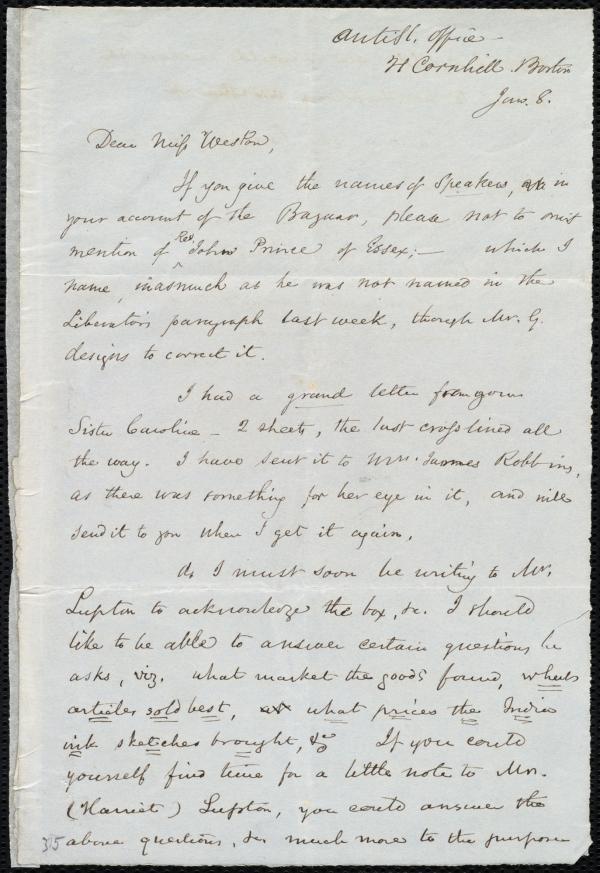 AntiSl. Office –
21 Cornhill. Boston
Jan. 8.
Dear Miss Weston,
If you give the names of Speakers, in
your account of the Bazaar, please not to omit
mention of Rev. John Prince of Essex; — which I
name, inasmuch as he was not named in the
Liberator's paragraph last week, though Mr. G.
designs to correct it.
I had a grand letter from your
Sister Caroline – 2 sheets, the last crosslined all
the way. I have sent it to Mrs. James Robbins,
as there was something for her eye in it, and will
send it to you when I get it again.
As I must soon be writing to Mr.
Lupton to acknowledge the box, &c. I should
like to be able to answer certain questions he
asks, viz. what market the goods found, what
articles sold best, what prices the India
ink sketches brought, &c If you could
yourself find time for a little note to Mrs.
(Harriet) Lupton, you could answer the
above questions, &c much more to the purpose
315